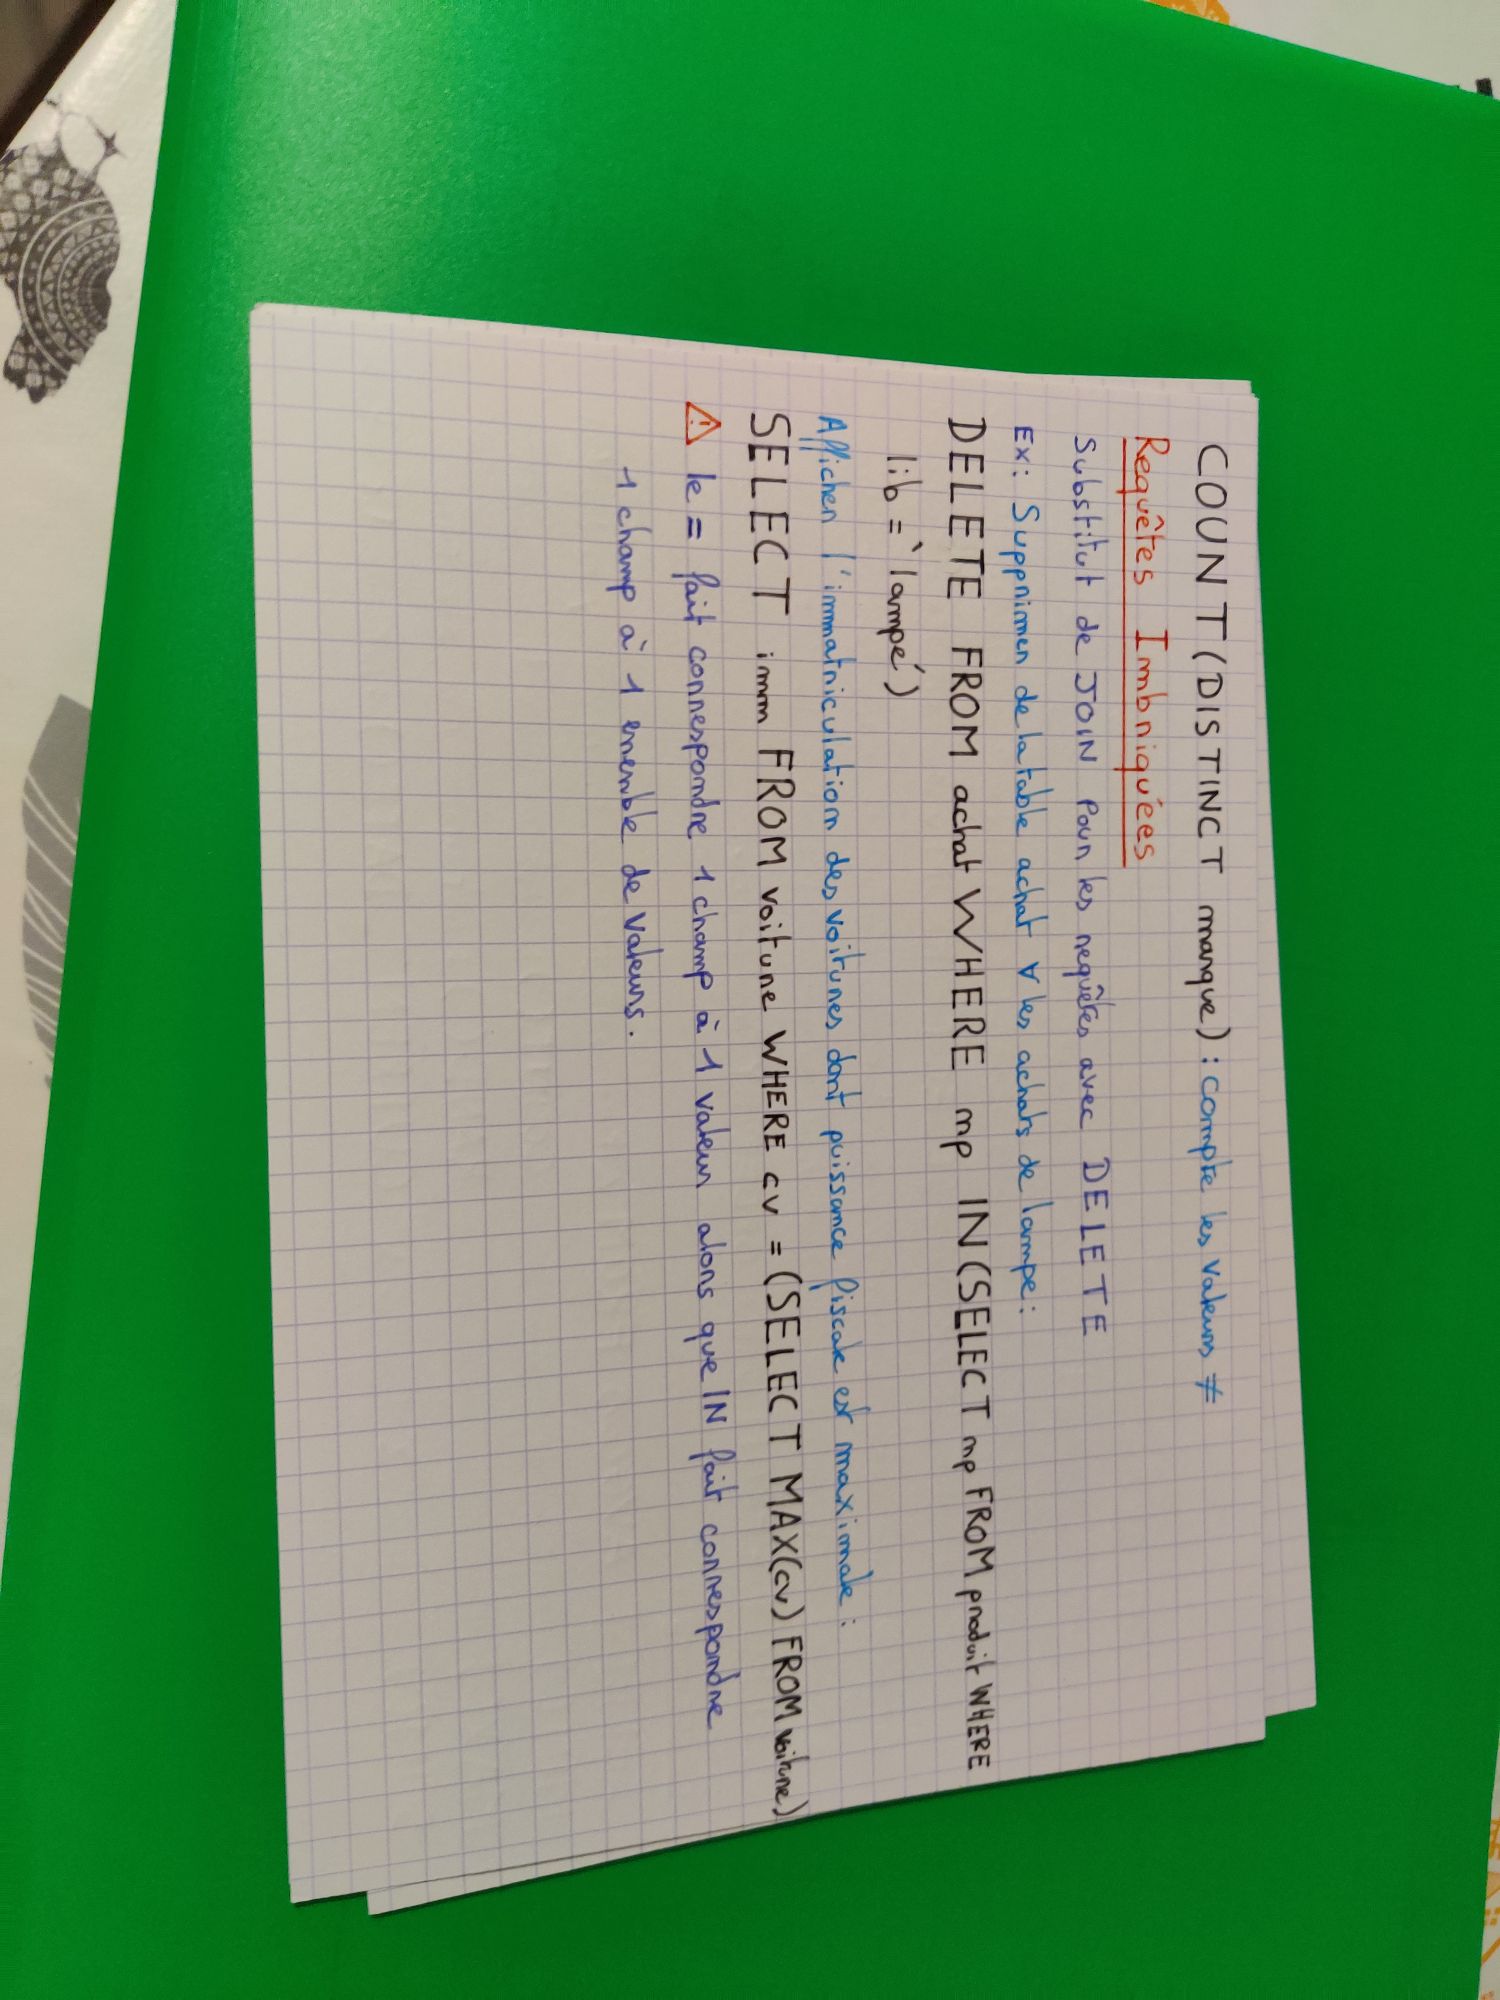 COUNT(DISTINCT marque) : compte les valeurs ≠
Requêtes Imbriquées
Substitut de JOIN pour les requêtes avec DELETE
Ex: Supprimer de la table achat ∀ les achats de lampe:
DELETE FROM achat WHERE np IN (SELECT np FROM produit WHERE
lib = 'lampe')
Afficher l'immatriculation des voitures dont puissance fiscale est maximale :
SELECT imm FROM voiture WHERE cv = (SELECT MAX(cv) FROM voiture)
⚠ le = fait correspondre 1 champ à 1 valeur alors que IN fait correspondre
1 champ à 1 enemble de valeurs.